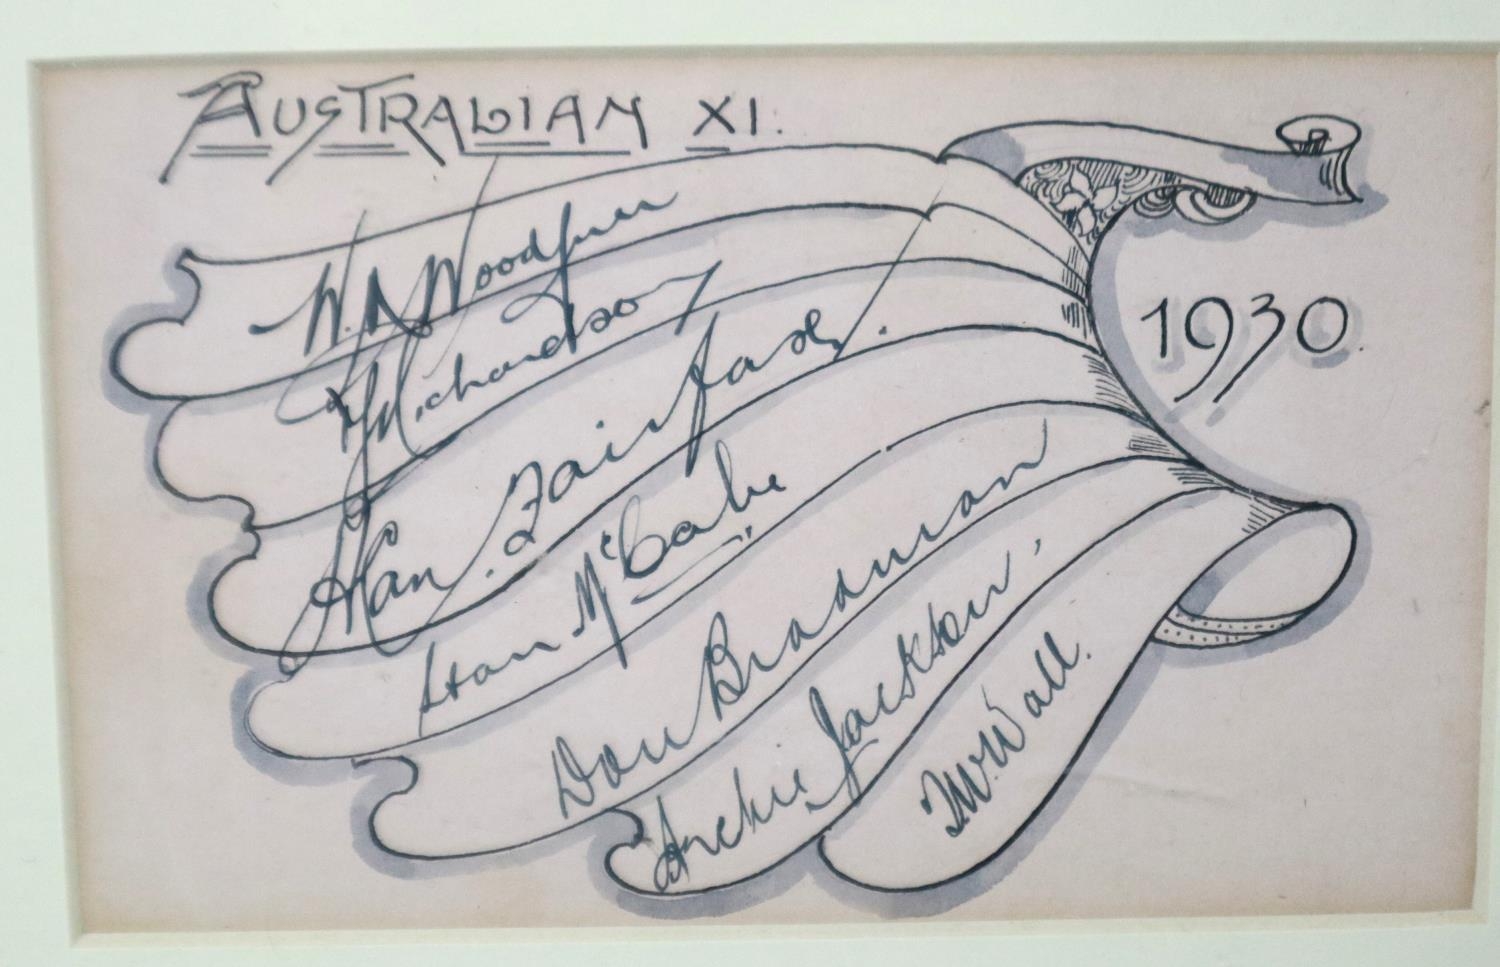 AUSTRALIAN XI.
W. M. Woodfull
V Richardson
1930.
Alan. Fairfax.
Stan McCabe
Don Bradman
Archie Jackson
T.W. Wall.